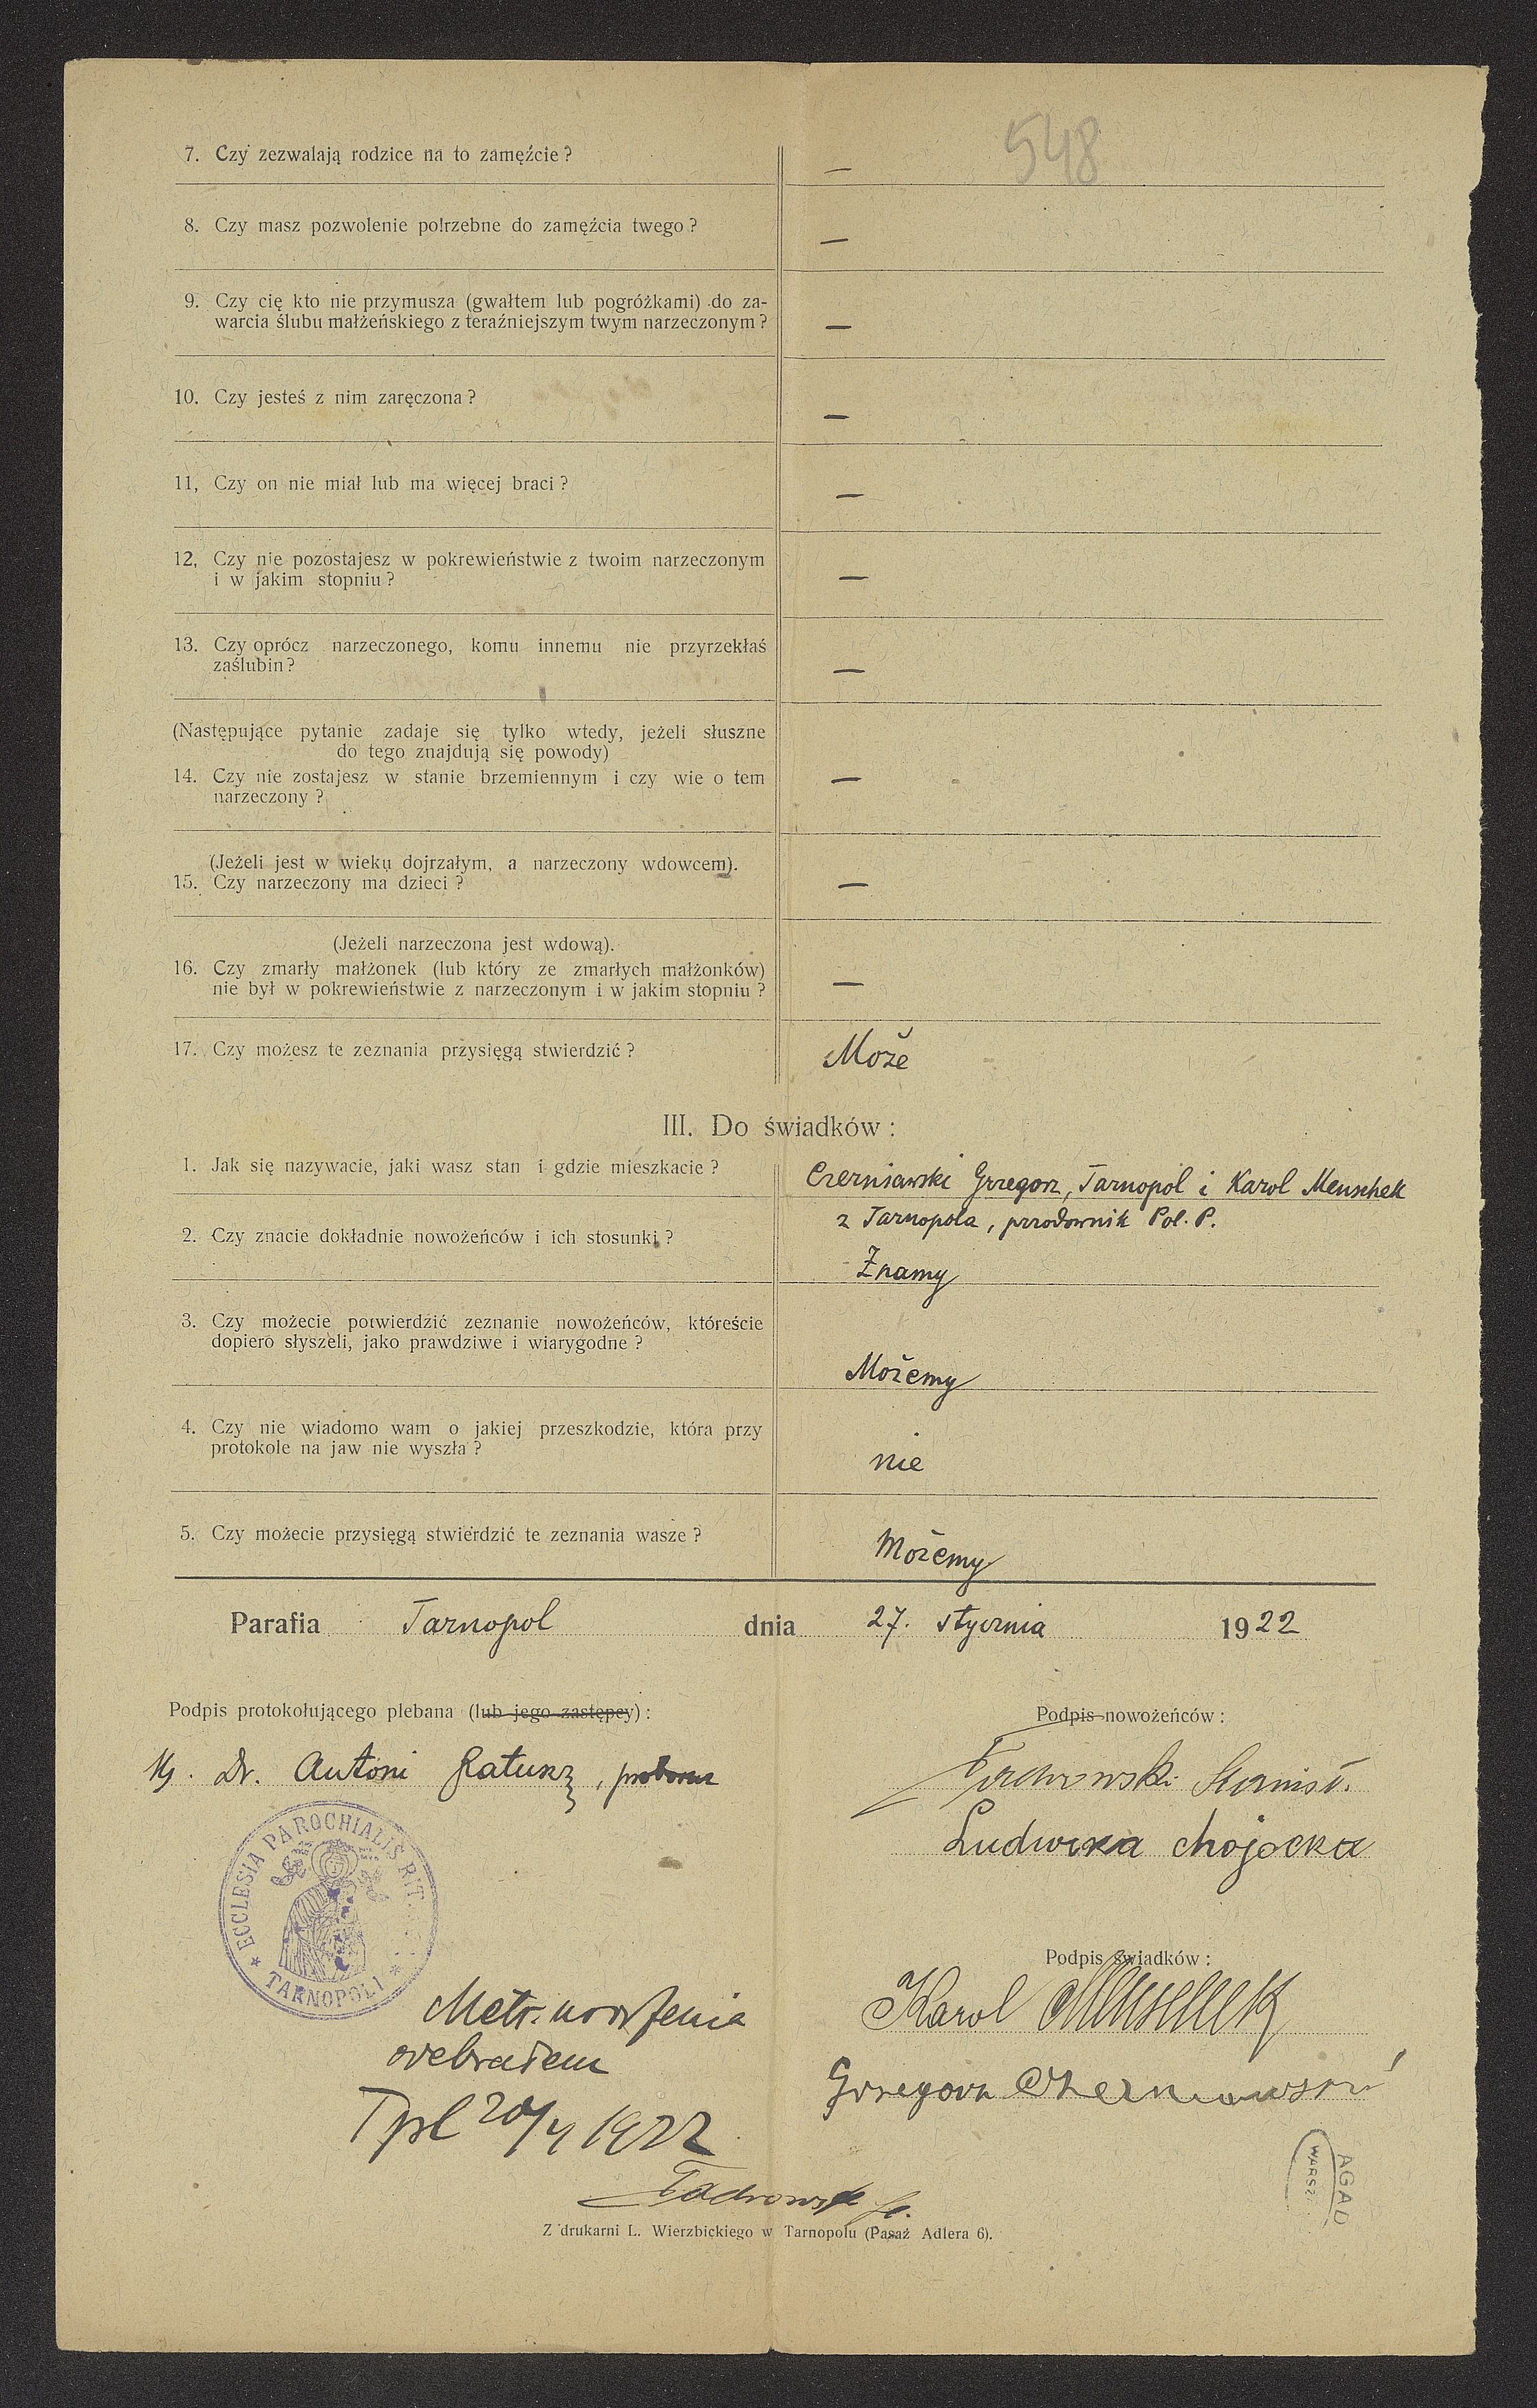 548
7. Czy zezwalają rodzice na to zamęźcie ? —
8. Czy masz pozwolenie potrzebne do zamęźcia twego ? —
9. Czy cię kto nie przymusza (gwałtem lub pogróżkami) do za-
warcia ślubu małżeńskiego z teraźniejszym twym narzeczonym ? —
10. Czy jesteś z nim zaręczona ? —
11, Czy on nie miał lub ma więcej braci ? —
12, Czy nie pozostajesz w pokrewieństwie z twoim narzeczonym
i w jakim stopniu ? —
13. Czy oprócz narzeczonego, komu innemu nie przyrzekłaś
zaślubin ? —
(Następujące pytanie zadaje się tylko wtedy, jeżeli słuszne
do tego znajdują się powody)
14. Czy nie zostajesz w stanie brzemiennym i czy wie o tem
narzeczony ? —
(Jeżeli jest w wieku dojrzałym, a narzeczony wdowcem).
15. Czy narzeczony ma dzieci ? —
(Jeżeli narzeczona jest wdową).
16. Czy zmarły małżonek (lub który ze zmarłych małżonków)
nie był w pokrewieństwie z narzeczonym i w jakim stopniu ? —
17. Czy możesz te zeznania przysięgą stwierdzić ? Może
III. Do świadków :
1. Jak się nazywacie, jaki wasz stan i gdzie mieszkacie ? Czerniawski Grzegorz, Tarnopol i Karol Menschek
z Tarnopola, przodownik Pol. P.
2. Czy znacie dokładnie nowożeńców i ich stosunki ? Znamy
3. Czy możecie potwierdzić zeznanie nowożeńców, któreście
dopiero słyszeli, jako prawdziwe i wiarygodne ? Możemy
4. Czy nie wiadomo wam o jakiej przeszkodzie, która przy
protokole na jaw nie wyszła ? nie
5. Czy możecie przysięgą stwierdzić te zeznania wasze ? Możemy
Parafia Tarnopol dnia 27. stycznia 1922
Podpis protokołującego plebana (lub jego zastępcy) :
Podpis nowożeńców :
Dr. Antoni , proboszcz
Ludwika Chojecka
ECCLESIA PAROCHIALIS R. T. TARNOPOLI
Podpis świadków :
Karol Menschek
Grzegorz Czerniawski
Metr. urodzenia
odebrałem
Tpl 1922
AGAD
WARSZ
Z drukarni L. Wierzbickiego w Tarnopolu (Pasaż Adlera 6).